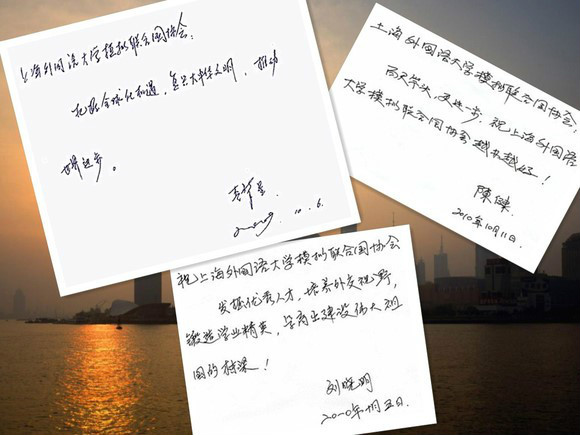 上海外国语大学模拟联合国协会：
把握全球化机遇，复兴大中华文明，推动
世界进步。
10.6.
上海外国语大学模拟联合国协会：
百尺竿头，更进一步，祝上海外国语
大学模拟联合国协会越办越好！
陳健.
2010年10月11日.
祝上海外国语大学模拟联合国协会
发掘优秀人才，培养外交视野，
锻造学业精英，孕育出建设伟大祖
国的栋梁！
刘晓明